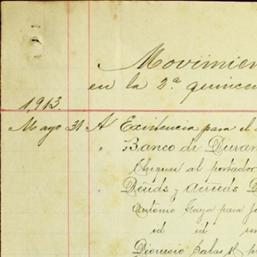 Movimien
en la 2ª quincen
1913.
Mayo 31 A Existencia para el
" Banco de Duran
Cheque al portador
" Deuds y Acreeds D
Antonio Gaya para
id id
Dionisio Salas